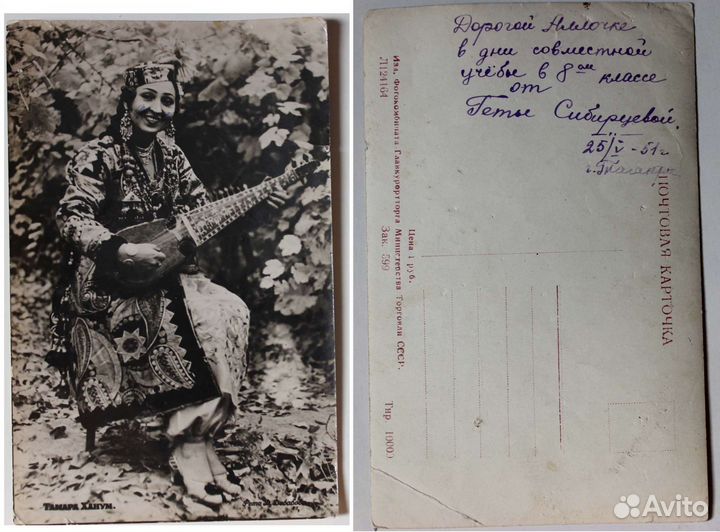 ТАМАРА ХАНУМ.
Фото
Дорогой Аллочке
в дни совместной
учёбы в 8ом классе
от
Геты Сибирцевой.
25/V-51г
г. Таганрог
ПОЧТОВАЯ КАРТОЧКА
Цена 1 руб.
Изд. Фотокомбината Главкурортторга Министерства Торговли СССР.
Л124164
Зак. 599
Тир. 10000
Avito